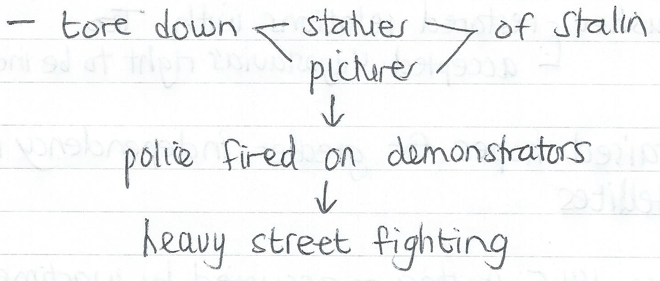 - tore down < statues > of Stalin
pictures
↓
police fired on demonstrators
↓
heavy street fighting